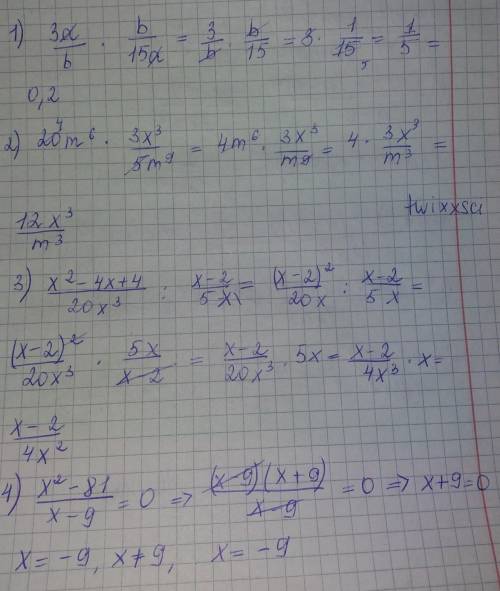 1) 3a/b · b/15a = 3/b · b/15 = 3 · 1/15 = 1/5 =
0,2
2) 20m⁶ · 3x³/5m⁹ = 4m⁶ · 3x³/m⁹ = 4 · 3x³/m³ =
twixxsa
12x³/m³
3) x²-4x+4/20x³ : x-2/5x = (x-2)²/20x : x-2/5x =
(x-2)²/20x³ · 5x/x-2 = x-2/20x³ · 5x = x-2/4x³ · x =
x-2/4x²
4) x²-81/x-9 = 0 => (x-9)(x+9)/x-9 = 0 => x+9=0
x = -9, x ≠ 9, x = -9